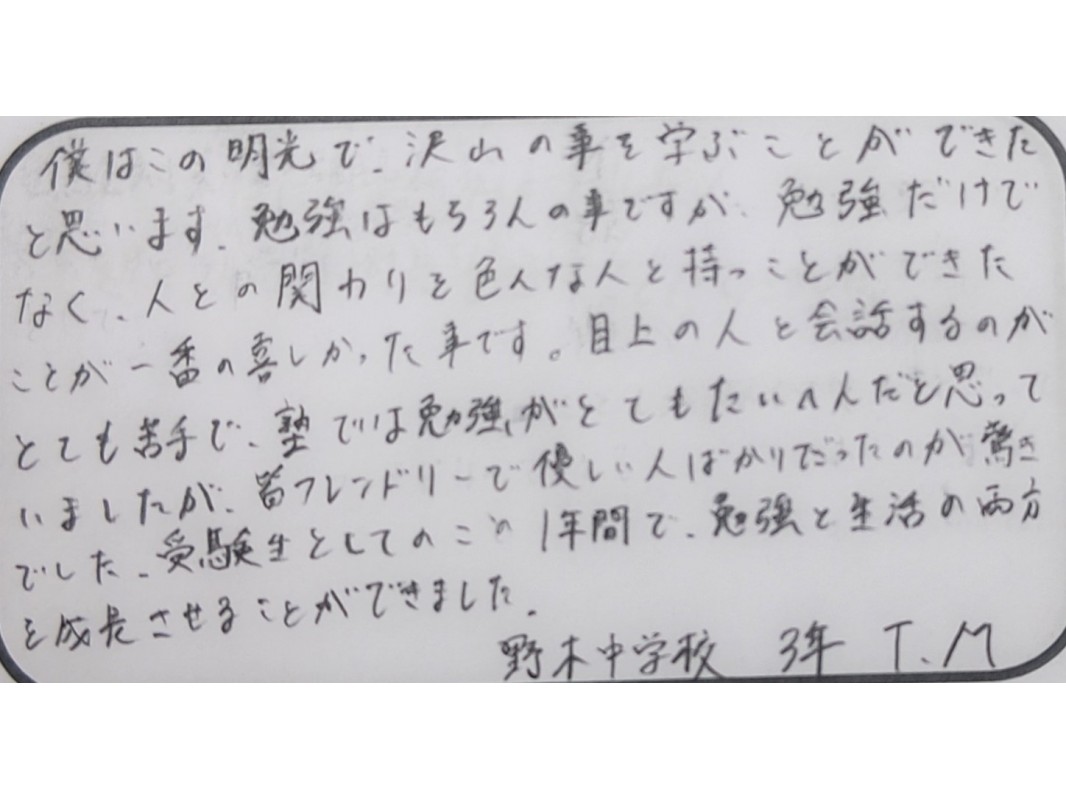 僕はこの明光で、沢山の事を学ぶことができた
と思います。勉強はもちろん の事ですが、勉強だけで
なく、人との関わりを色んな人と持つことができた
ことが一番の喜しかった事です。目上の人と会話するのが
とても苦手で、塾では勉強がとてもたいへんだと思って
いましたが、皆フレンドリーで優しい人ばかりだったのが驚き
でした。受験生としてのこの1年間で、勉強と生活の両方
を成長させることができました。
野木中学校 3年 T.M